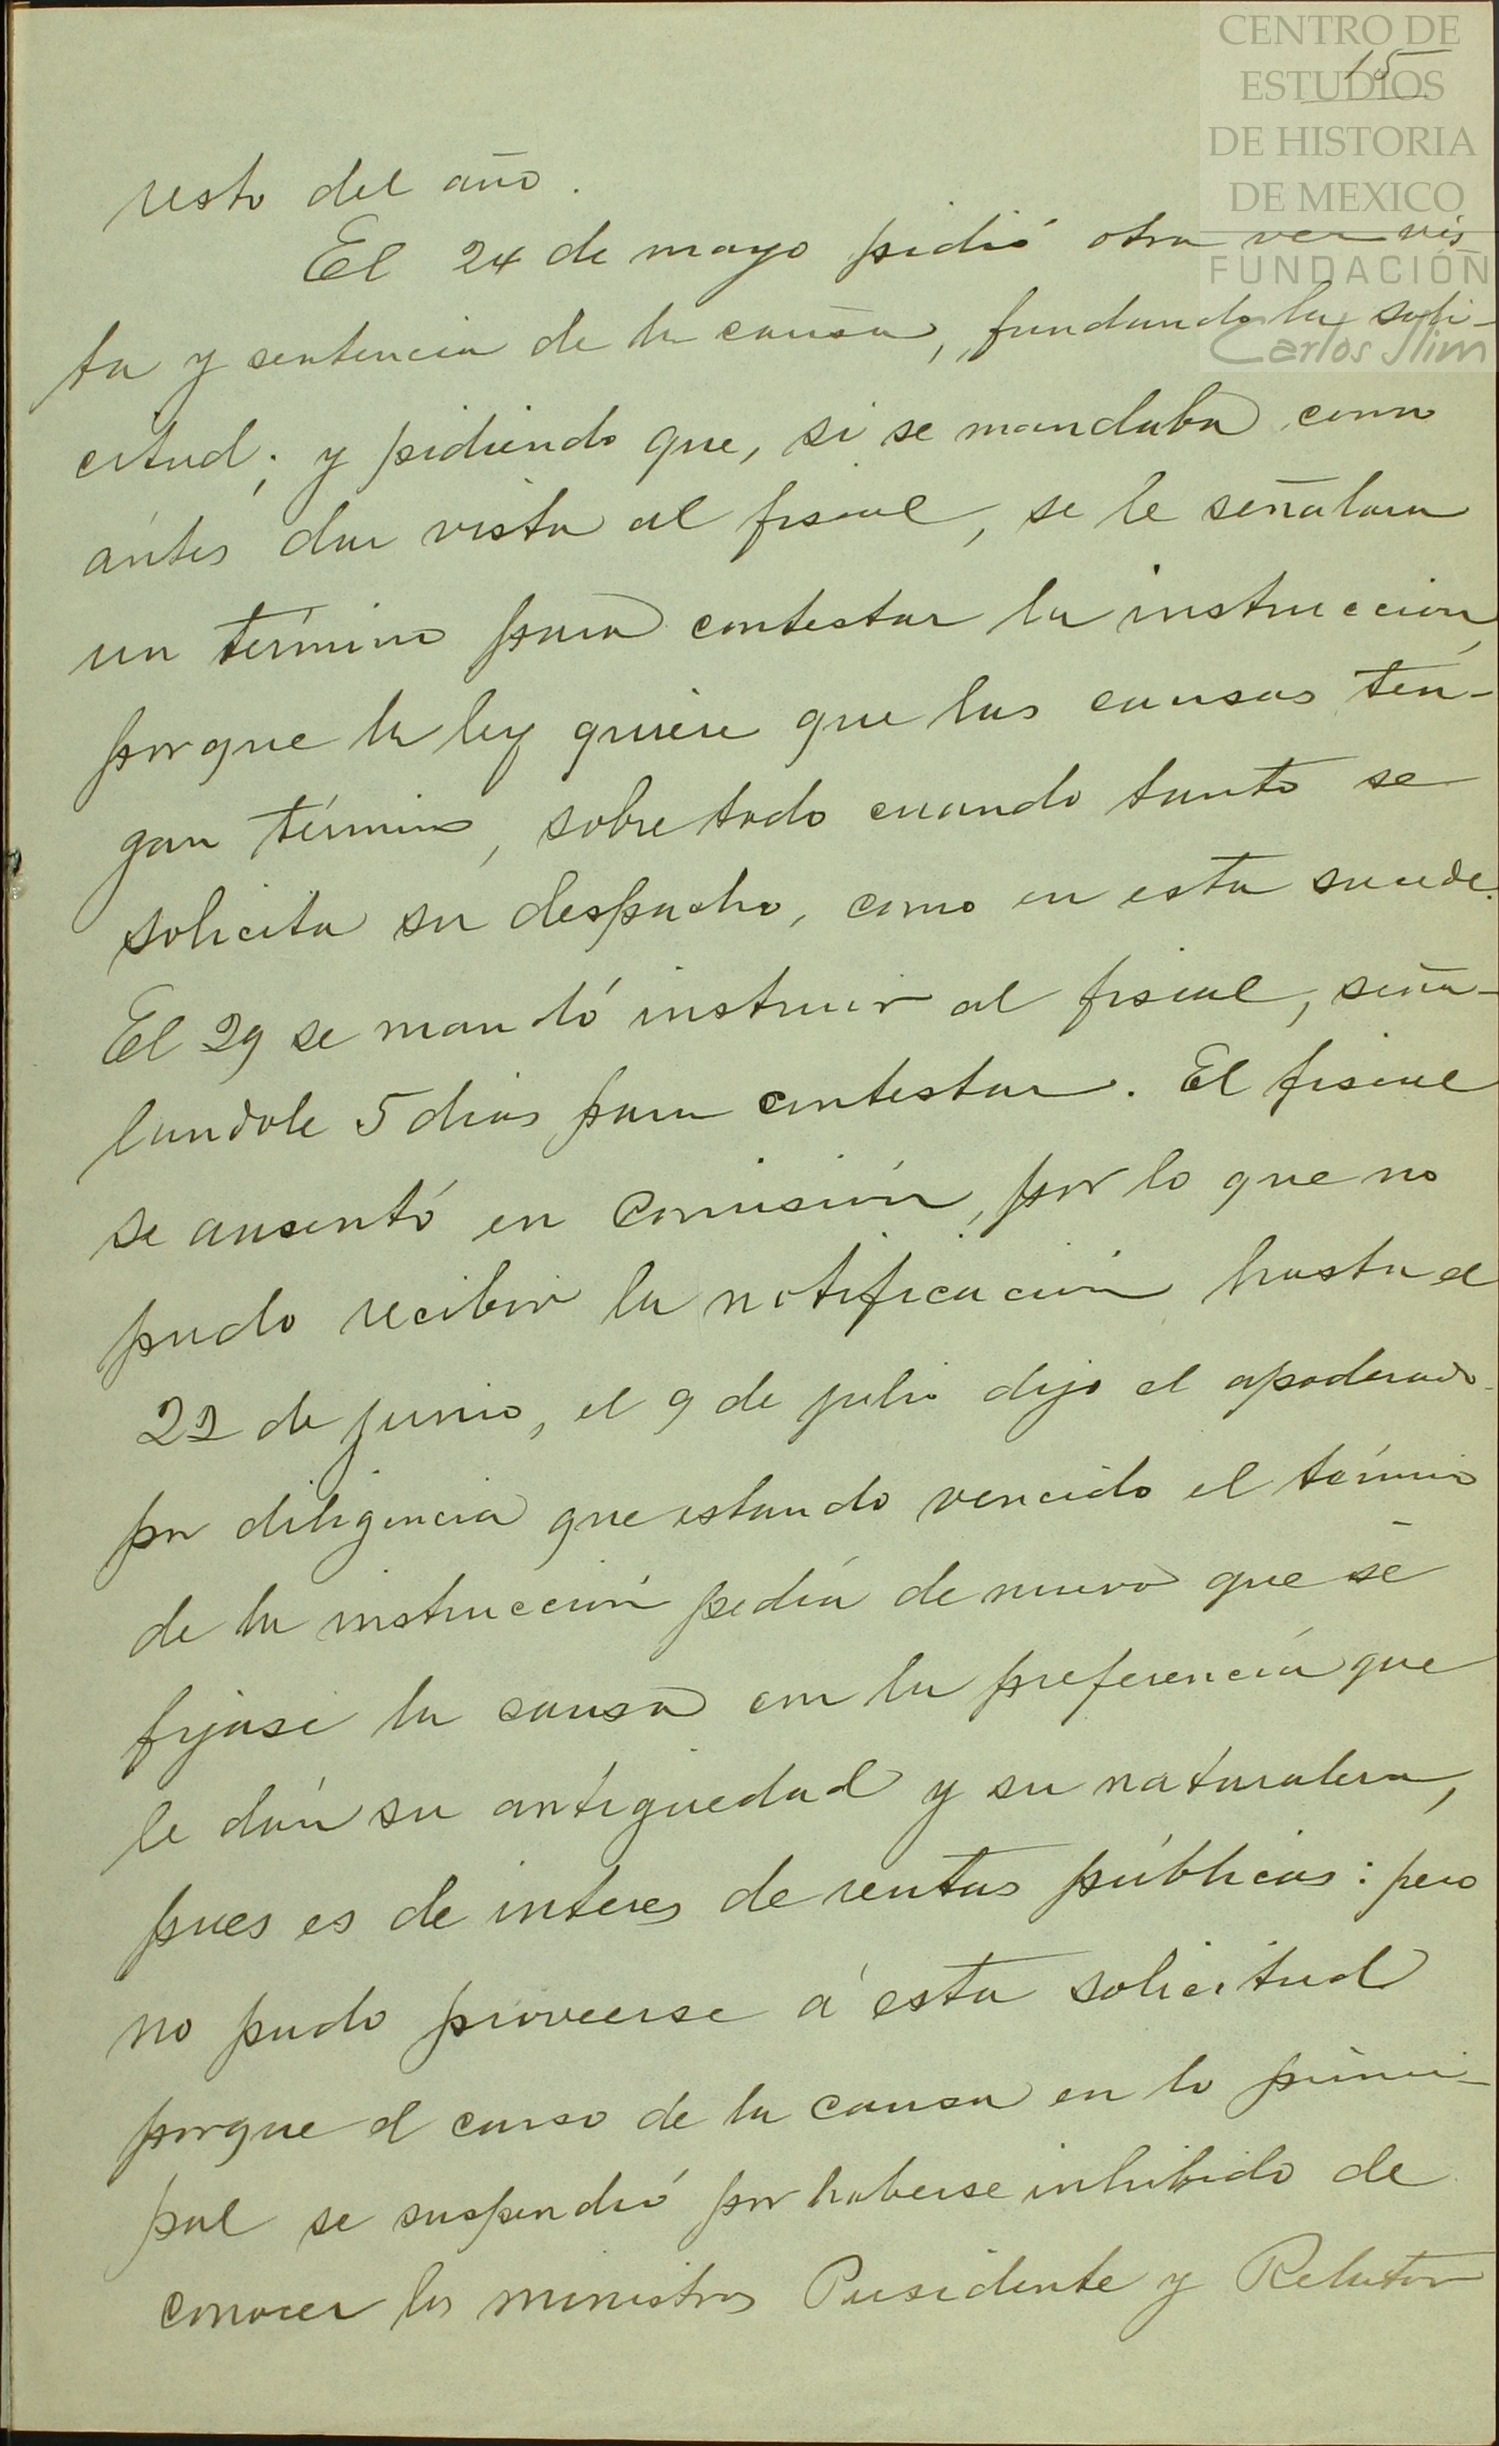 CENTRO DE
ESTUDIOS
DE HISTORIA
DE MEXICO
FUNDACIÓN
Carlos Slim
15
resto del año.
El 24 de mayo pidió otra vez vis
ta y sentencia de la causa, fundando la soli-
citud; y pidiendo que, si se mandaba como
ántes dar vista al fiscal, se le señalara
un término para contestar la instrucción,
porque la ley quiere que las causas ten-
gan término, sobre todo cuando tanto se
solicita su despacho, como en esta sucede.
El 29 se mandó instruir al fiscal, seña-
landole 5 dias para contestar. El fiscal
se ausentó en Comisión, por lo que no
pudo recibir la notificación hasta el
22 de junio, el 9 de julio dijo el apoderado
por diligencia que estando vencido el término
de la instrucción pedía de nuevo que se
fijase la causa con la preferencia que
le dán su antiguedad y su naturaleza,
pues es de interes de rentas públicas: pero
no pudo proveerse á esta solicitud
porque el curso de la causa en lo princi-
pal se suspendió por haberse inhibido de
conocer los ministros Presidente y Relator